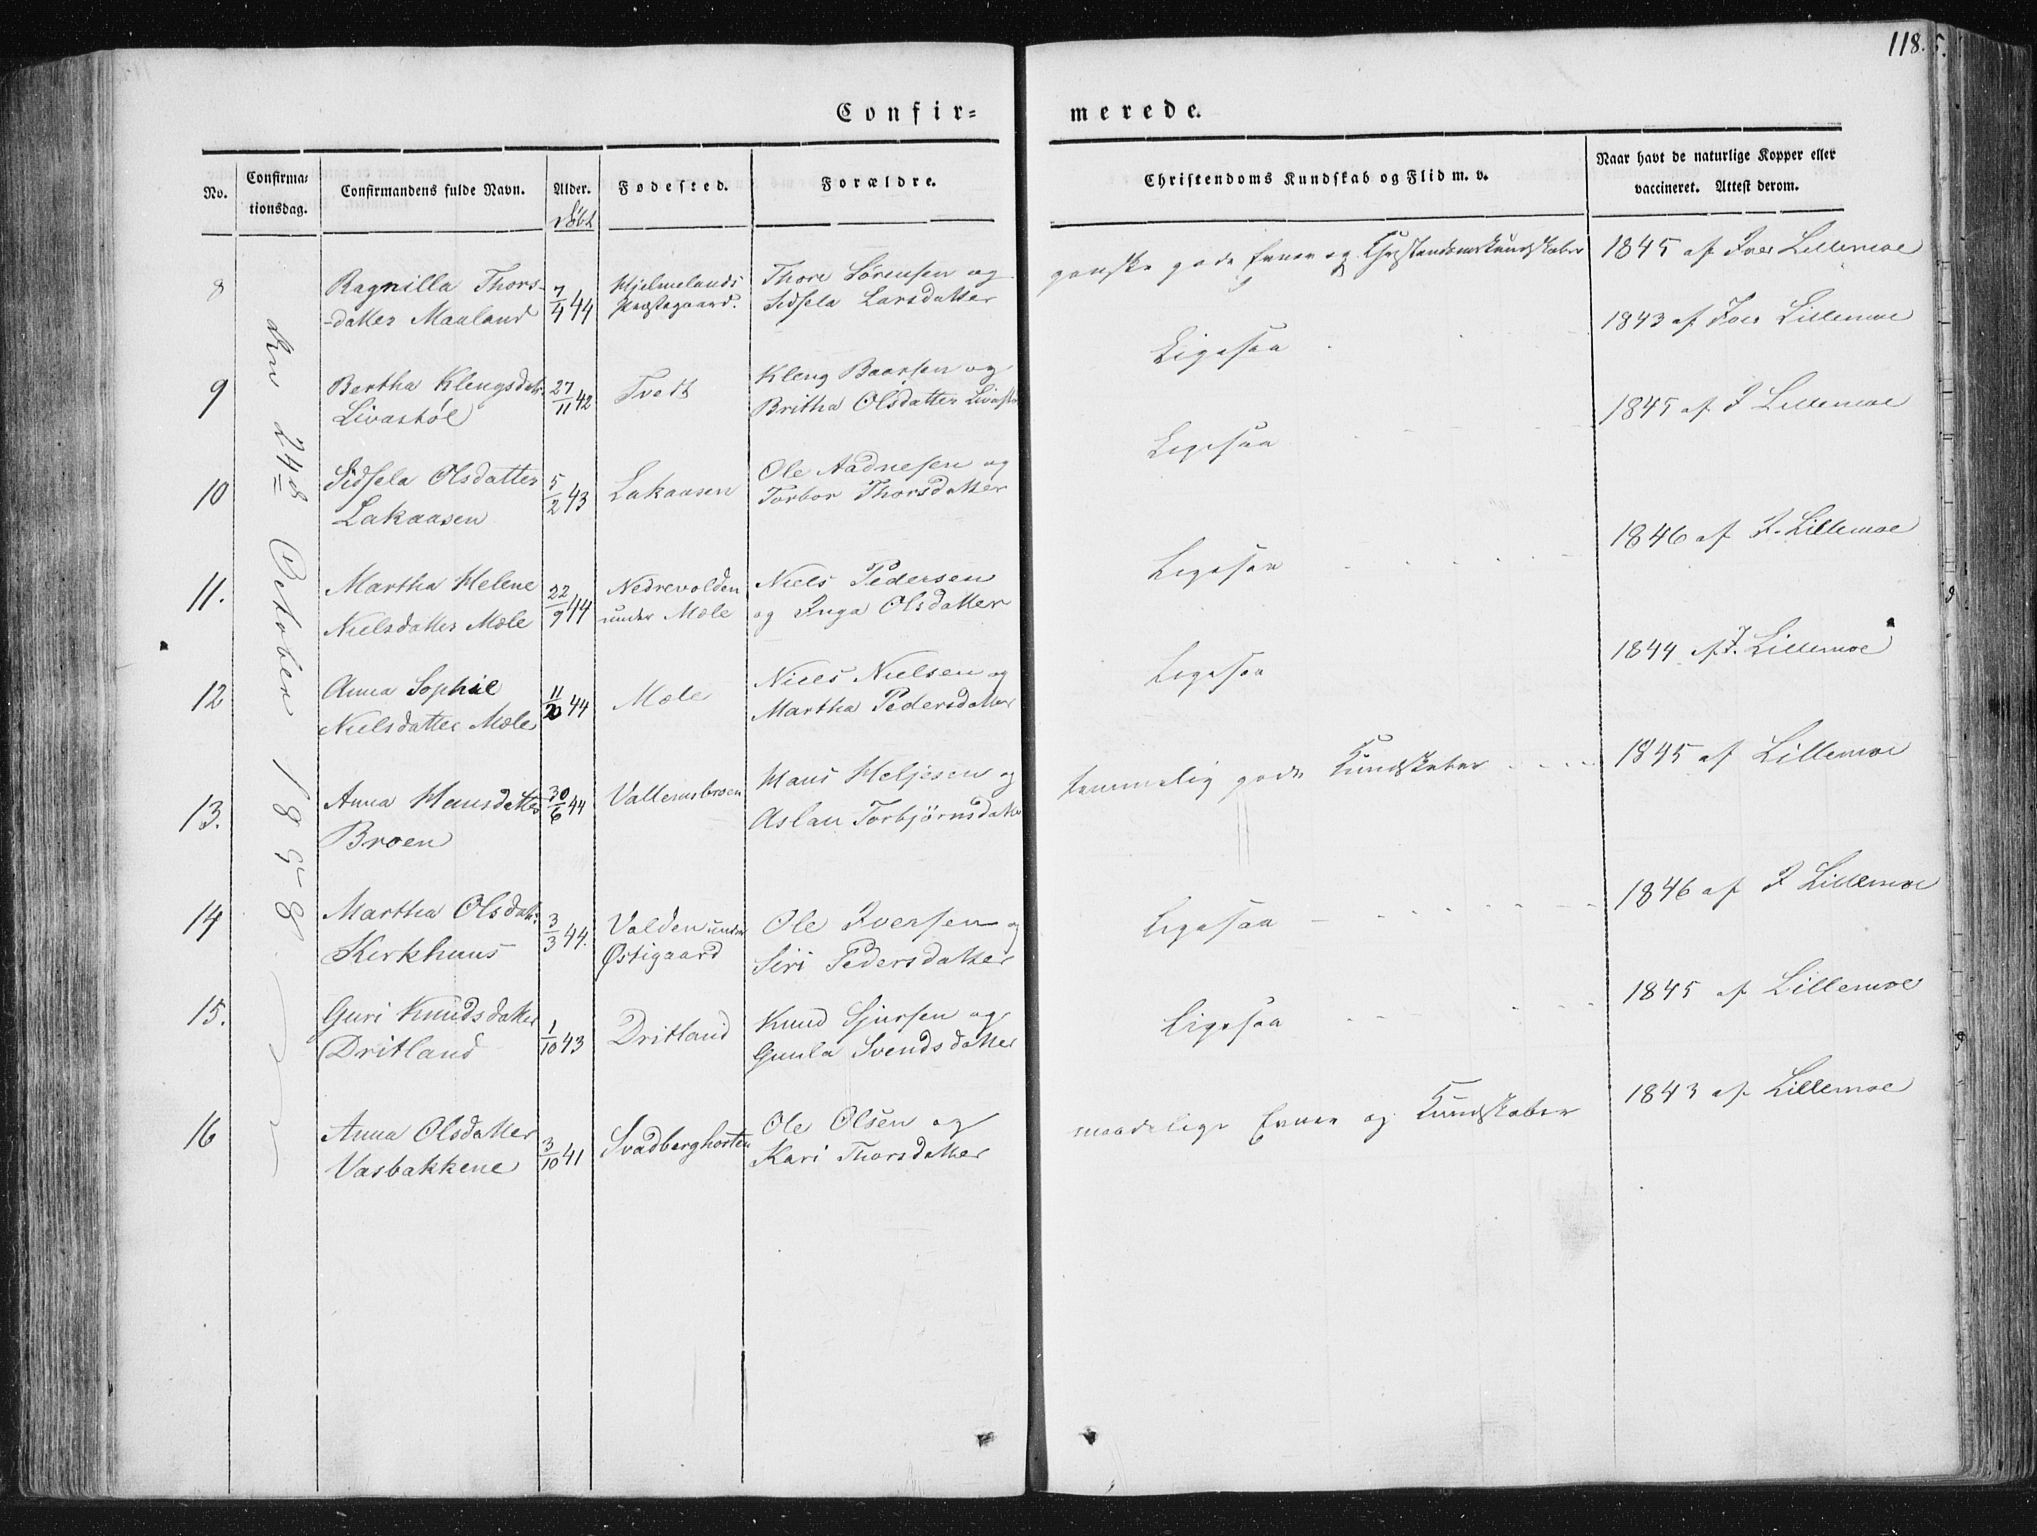 118.
5.
Confir=
merede.
No.
Confirma=
tionsdag.
Confirmandens fulde Navn.
Alder.
Døbt
Fødested.
Forældre.
Christendoms Kundskab og Flid m. v.
Naar havt de naturlige Kopper eller
vaccineret. Attest derom.
den 24de October 1858
8
Ragnilla Thors-
-datter Maaland
7/4 44
Hjelmelands
Præstegaard.
Thore Sørensen og
Sidsela Larsdatter
ganske gode Evner og Christendomskundskaber
1845 af Iver Lillemoe
9
Bertha Klengsdatr
Livastøl
27/11 42
Tvedt
Kleng Baarsen og
Britha Olsdatter
Ligesaa
1843 af Iver Lillemoe
10
Sidsela Olsdatter
Lakaasen
5/2 43
Lakaasen
Ole Aadnesen og
Torbor Thorsdatter
Ligesaa
1845 af I Lillemoe
11.
Martha Helene
Nielsdatter Mæle
22/9 44
Nedrevolden
under Mæle
Niels Pedersen
og Inga Olsdatter
Ligesaa
1846 af I. Lillemoe
12
Anna Sophie
Nielsdatter Mæle
44
Mæle
Niels Nielsen og
Martha Pedersdatter
Ligesaa
1844 af I. Lillemoe
13.
Anna Hansdatter
Broen
30/6 44
Vallemsbroen
Hans Heljesen og
Aslau Torbjørnsdatter
temmelig gode Kundskaber
1845 af Lillemoe
14
Martha Olsdatr
Kirkhuus
3/3 44.
Volden under
Østigaard
Ole Iversen og
Siri Pedersdatter
Ligesaa
1846 af I Lillemoe
15.
Guri Knudsdatter
Dritland
1/10 43
Dritland
Knud Sjursen og
Gunla Svendsdatter
Ligesaa
1845 af Lillemoe
16
Anna Olsdatter
Vasbakkene
3/10 41
Svadberghorten
Ole Olsen og
Kari Thorsdatter
maadelige Evner og Kundskaber
1843 af Lillemoe